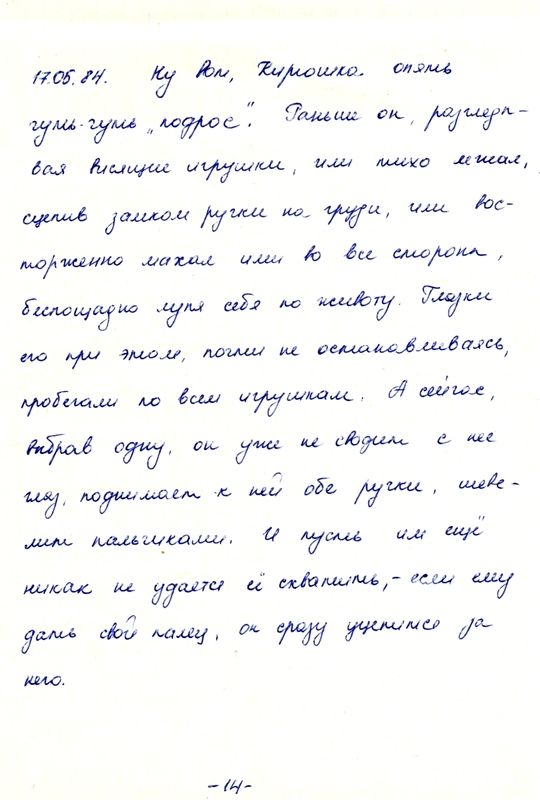 17.05.84. Ну вот, Кирюшка опять
чуть-чуть „подрос". Раньше он, разгляды-
вая висящие игрушки, или тихо лежал,
сцепив замком ручки на груди, или вос-
торженно махал ими во все стороны,
беспощадно лупя себя по животу. Глазки
его при этом, почти не останавливаясь,
пробегали по всем игрушкам. А сейчас,
выбрав одну, он уже не сводит с нее
глаз, поднимает к ней обе ручки, шеве-
лит пальчиками. И пусть им ещё
никак не удается её схватить, - если ему
дать свой палец, он сразу уцепится за
него.
-14-